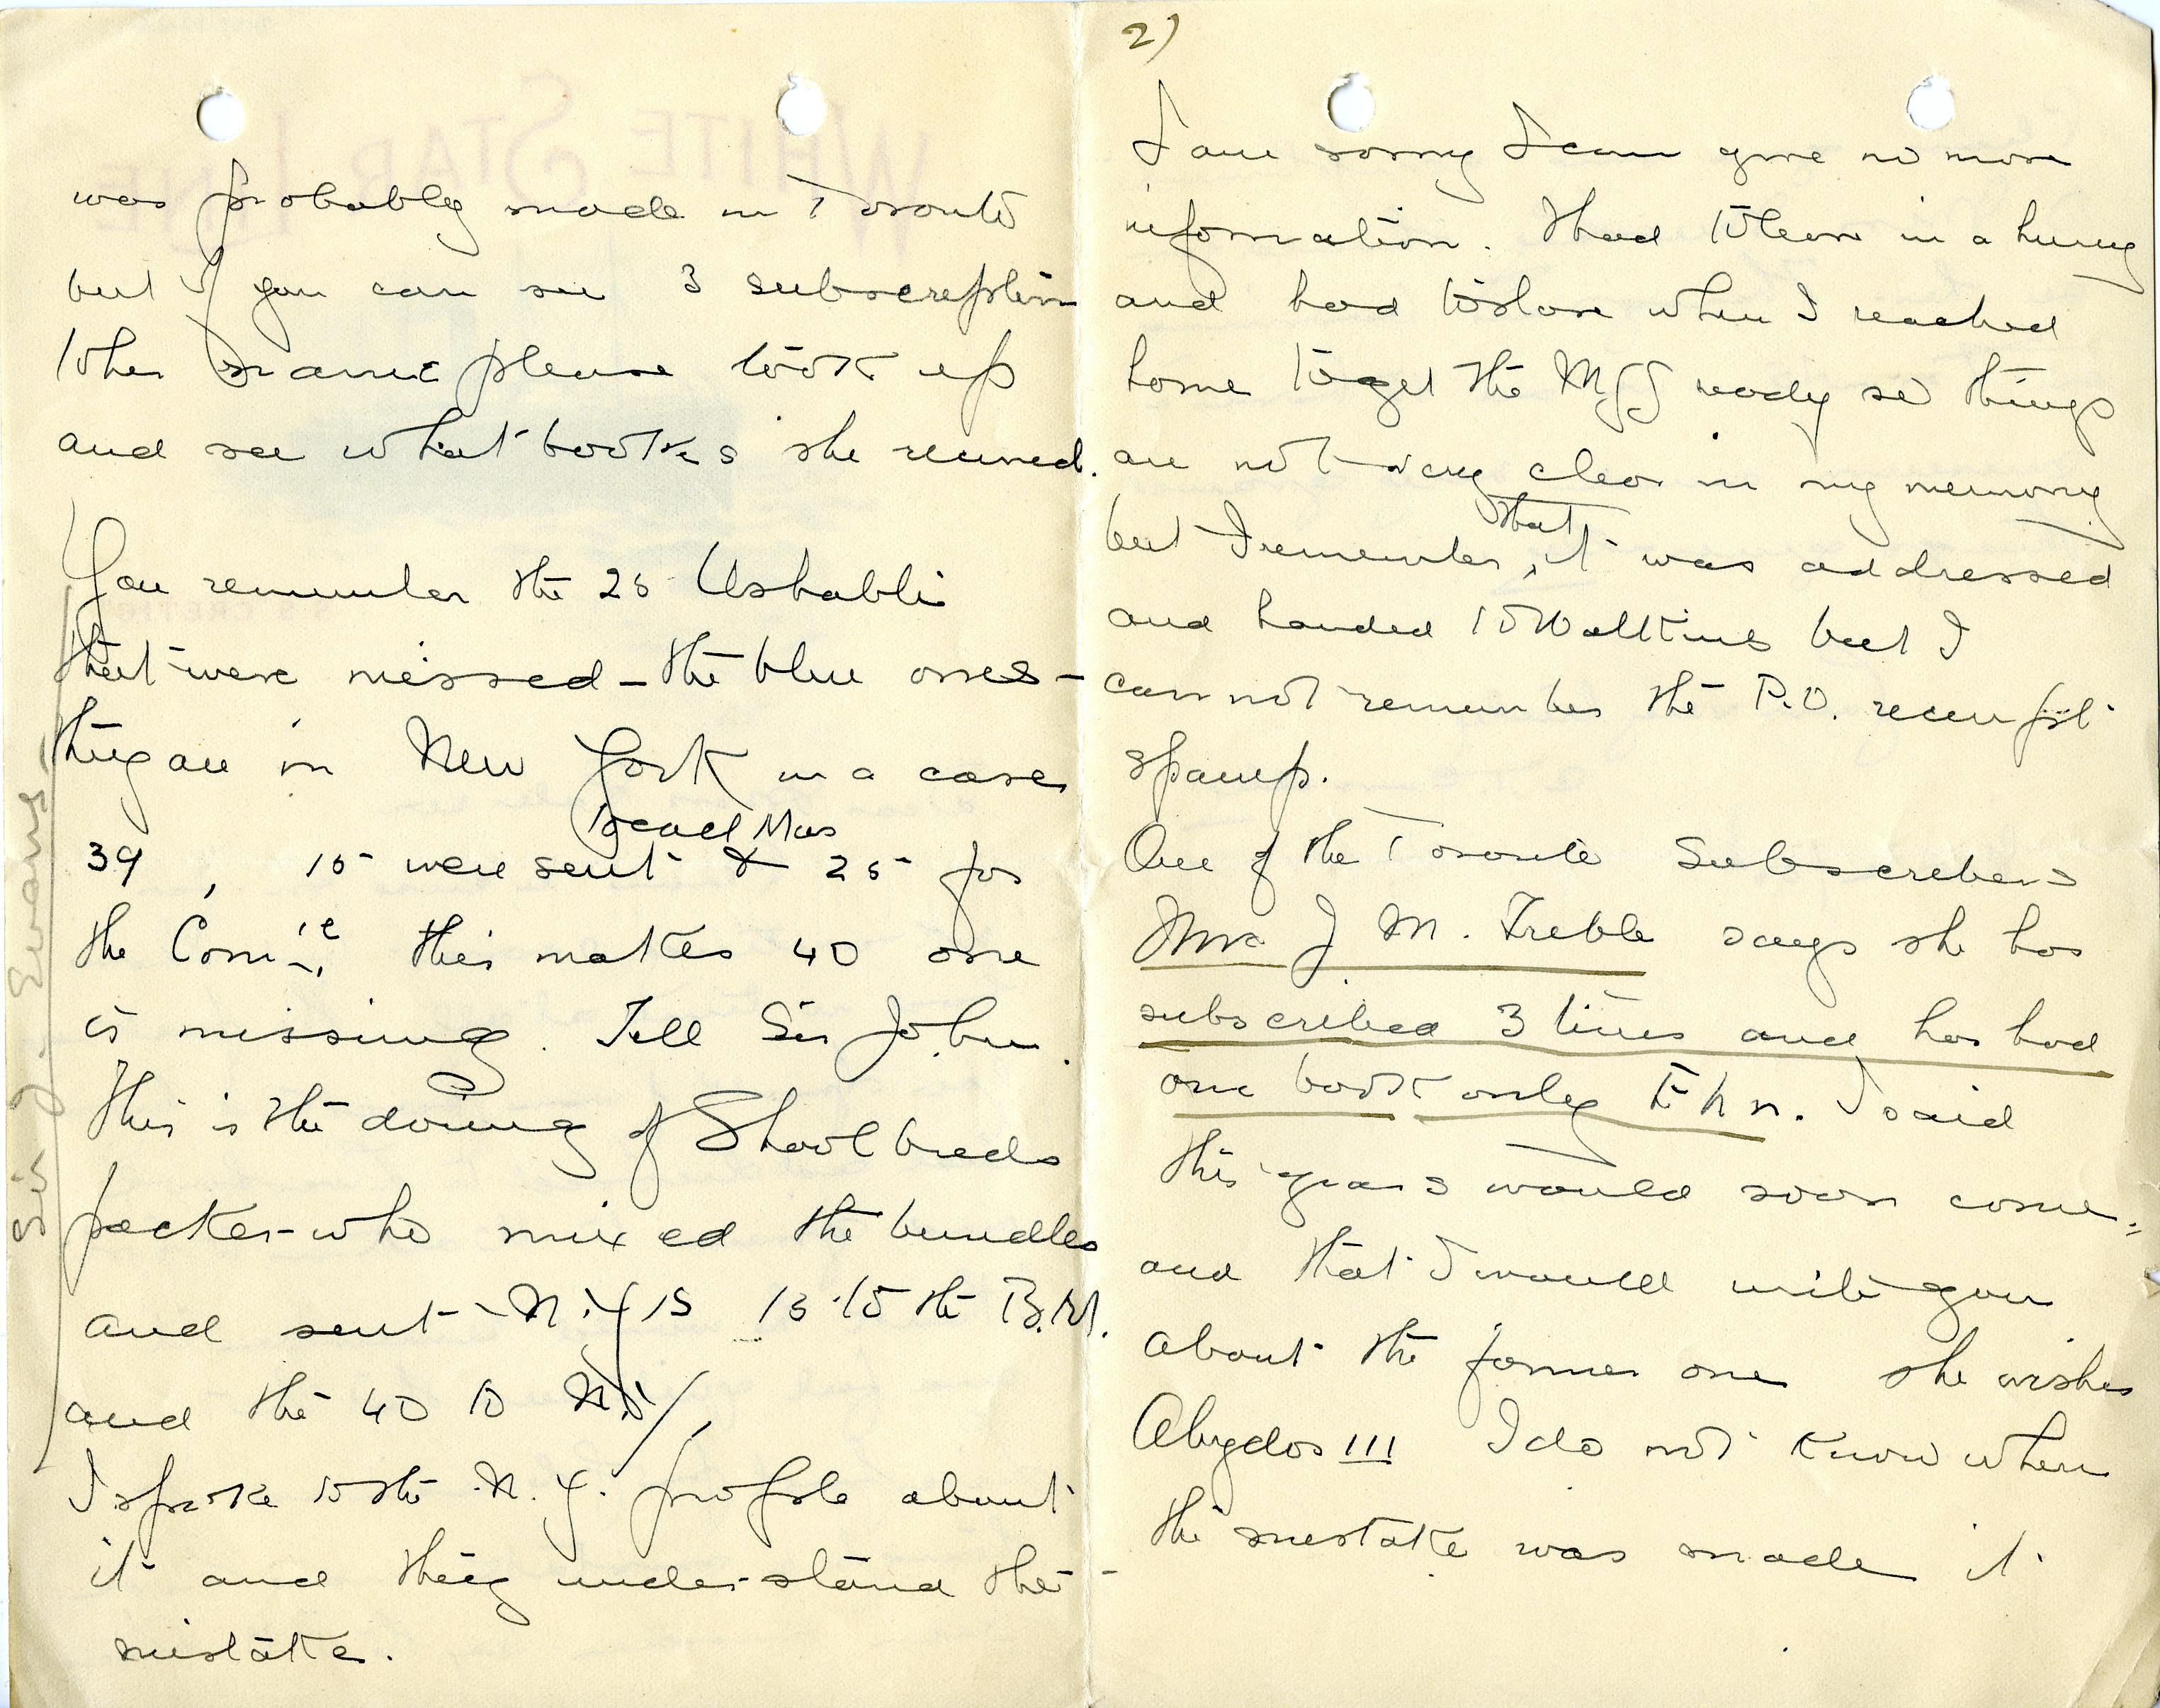 2)
I am sorry I can give no more
information. I had to leave in a hurry
and had to slave when I reached
home to get the MSS ready so things
are not very clear in my memory
but I remember, that it was addressed
and handed to Walkins but I
cannot remember the P.O. receipt
spamp.
One of the Toronto Subscribers
Mrs J. M. Treble says she has
subscribed 3 times and has had
one book only Ehn. I said
this years would soon come
and that I would write you
about the former one she wishes
Abydos III I do not know where
the mistake was made it
was probably made in Toronto
but if you can see 3 subscription
to her name please look up
and see what books she received.
You remember the 25 Ushabti
that were missed - the blue ones -
they are in New York in a case
39, 15 were sent Mus & 25 for
the Comtte this makes 40 one
is missing. Tell Sir John.
This is the doing of Shoolbreds
packer who mixed the bundles
and sent N.Y's 15 to the B.M.
and the 40 to N.Y.
I spoke to the N.Y. people about
it and they understand the
mistake.
Sir J. Evans